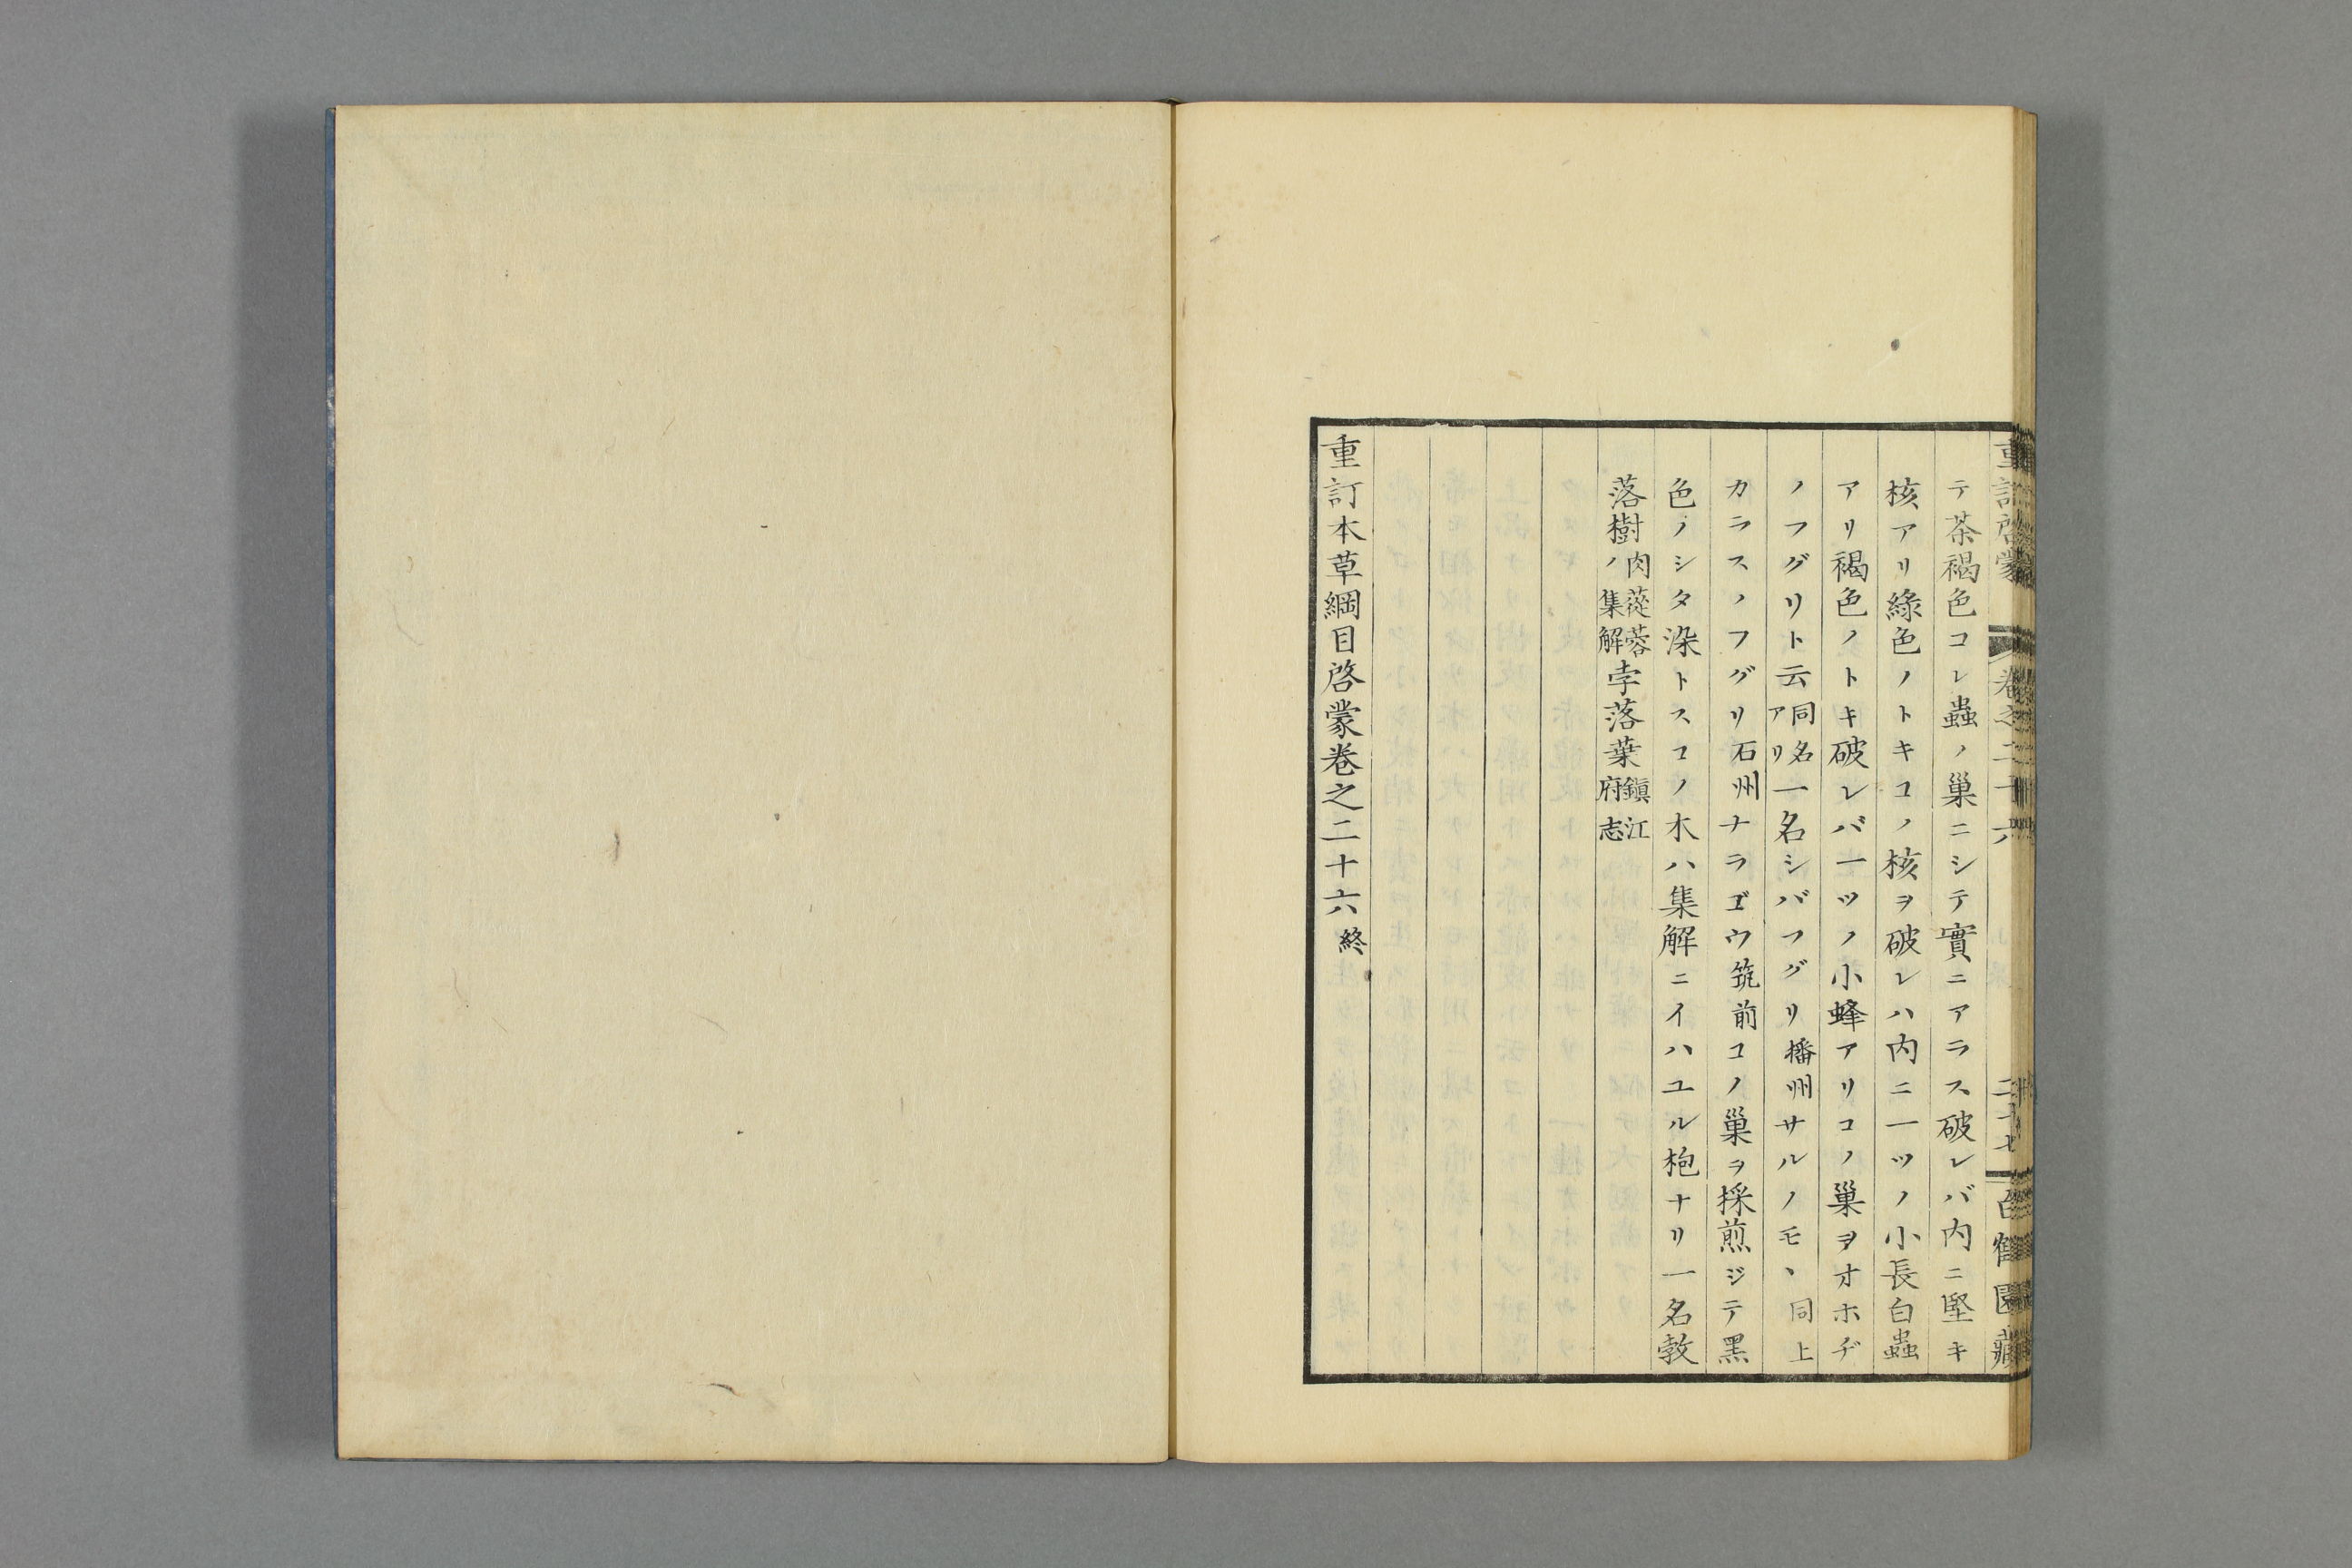 重訂啓蒙 卷之二十六 二十七
テ茶褐色コレ蟲ノ巢ニシテ實ニアラス破レバ内ニ堅キ
核アリ綠色ノトキコノ核ヲ破レハ内ニ一ツノ小長白蟲
アリ褐色ノトキ破レバ一ツノ小蜂アリコノ巢ヲオホヂ
ノフグリト云同名アリ一名シバフグリ播州サルノモヽ同上
カラスノフグリ石州ナラゴウ筑前コノ巢ヲ採煎ジテ黑
色ノシタ染トスコノ木ハ集解ニイハユル枹ナリ一名敦
落樹肉蓯蓉ノ集解孛落葉鎮江府志
重訂本草綱目啓蒙卷之二十六終